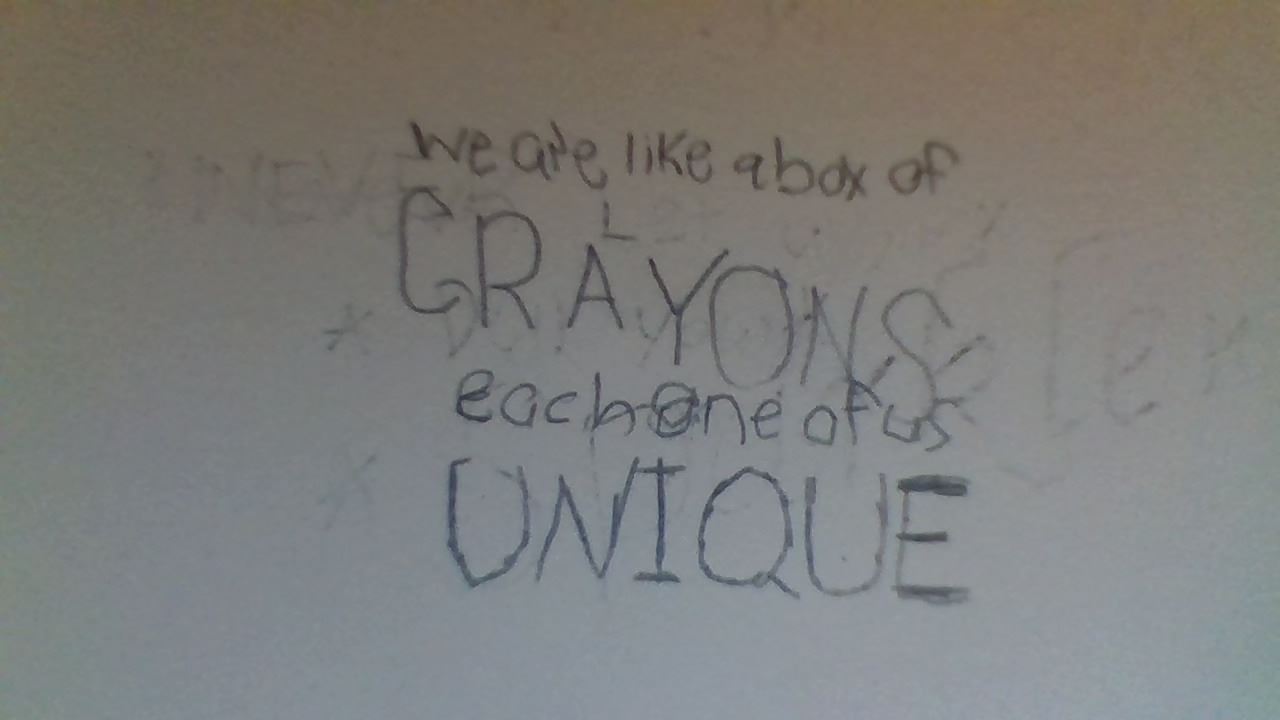 we are like a box of
CRAYONS
each one of us
UNIQUE